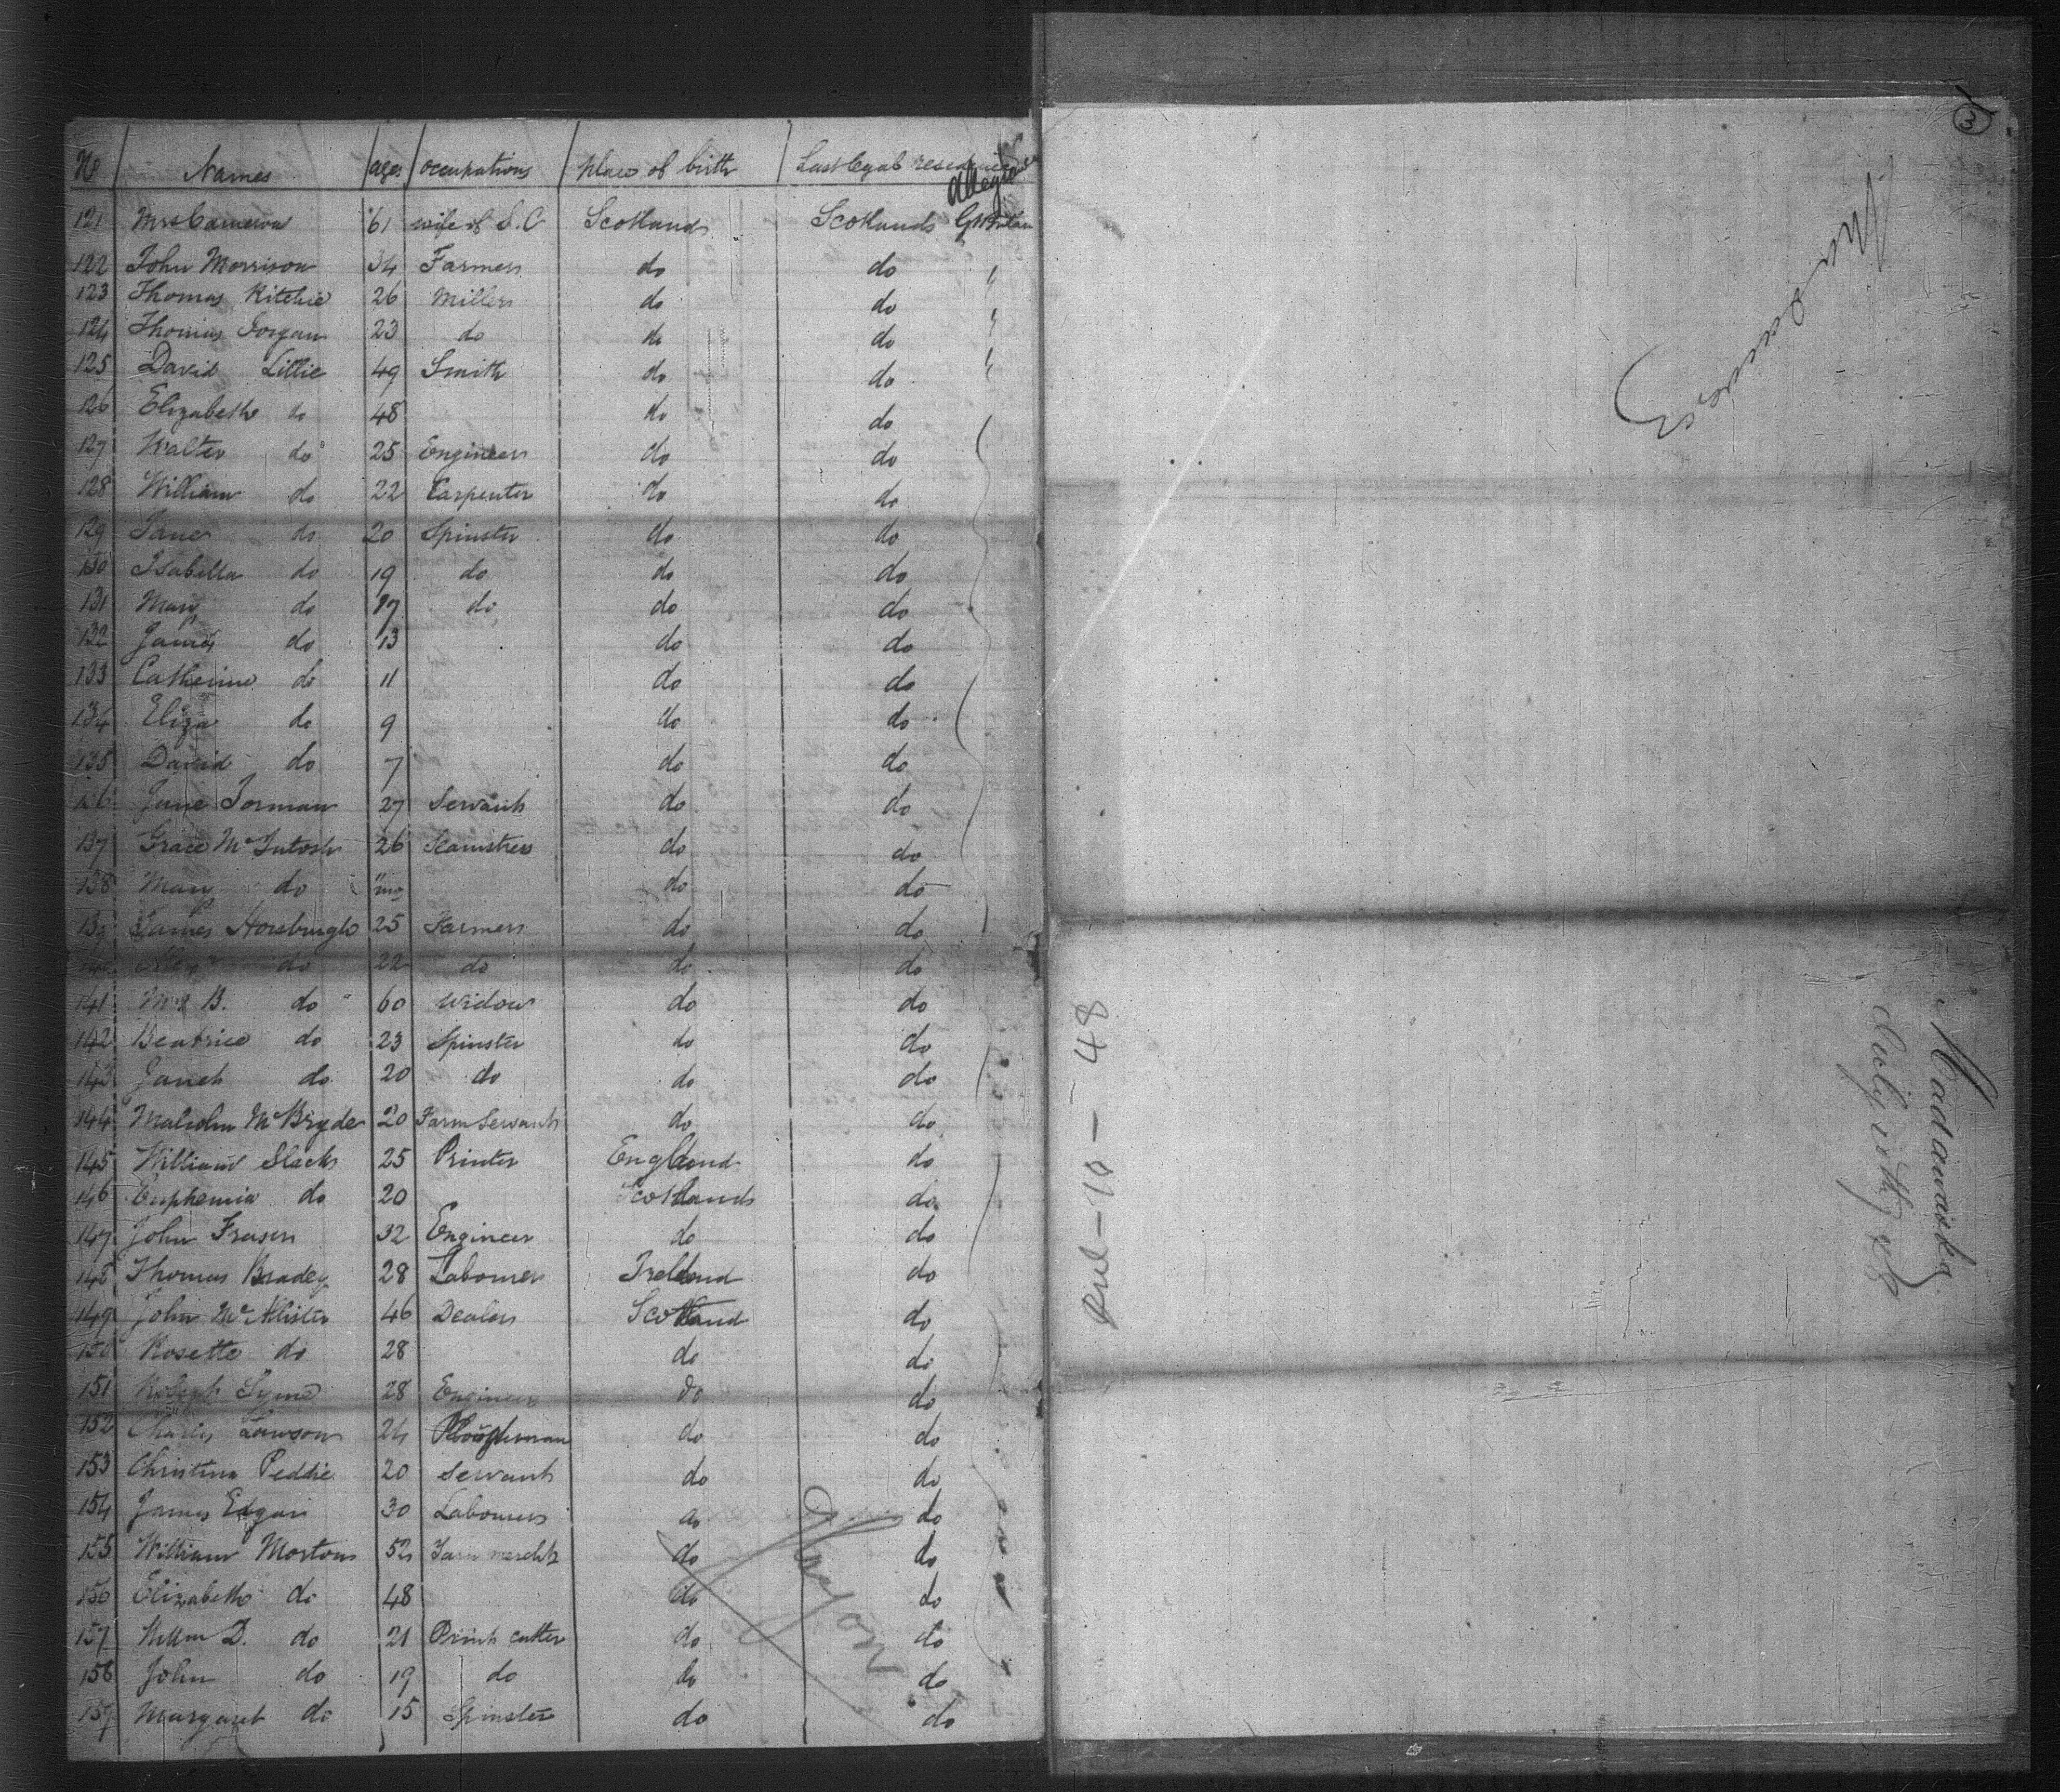 No Names ages occupations place of birth Last legal residence allegiance
121 Mrs Cameron 61 wife of S.C Scotland Scotland Gt Britain
122 John Morrison 34 Farmer do do "
123 Thomas Ritchie 26 Miller do do "
124 Thomas 23 do do do "
125 David Little 49 Smith do do "
126 Elizabeth do 48 do do
127 Walter do 25 Engineer do do
128 William do 22 Carpenter do do
129 Jane do 20 Spinster do do
130 Isabella do 19 do do do
131 Mary do 17 do do do
132 James do 13 do do
133 Catherine do 11 do do
134 Eliza do 9 do do
135 David do 7 do do
136 Jane 27 Servant do do
137 Grace McIntosh 26 Seamstress do do
138 Mary do mo do do
139 James Horsburgh 25 Farmer do do
do 22 do do do
141 Mrs B. do 60 Widow do do
142 Beatrice do 23 Spinster do do
143 Janet do 20 do do do
144 Malcolm McBryde 20 Farm Servant do do
145 William Slack 25 Printer England do
146 Euphemia do 20 Scotland do
147 John Fraser 32 Engineer do do
148 Thomas Bradey 28 Labourer Ireland do
149 John McAlister 46 Dealer Scotland do
150 Rosette do 28 do do
151 Robert Syme 28 Engineer do do
152 Charles Lawson 24 Ploughman do do
153 Christina Peddie 20 Servant do do
154 James Edgar 30 Labourer do do
155 William Morton 52 do do
156 Elizabeth do 48 do do
157 Willm D. do 21 Print cutter do do
158 John do 19 do do do
159 Margaret do 15 Spinster do do
3
Rul-10-48
Madawaska